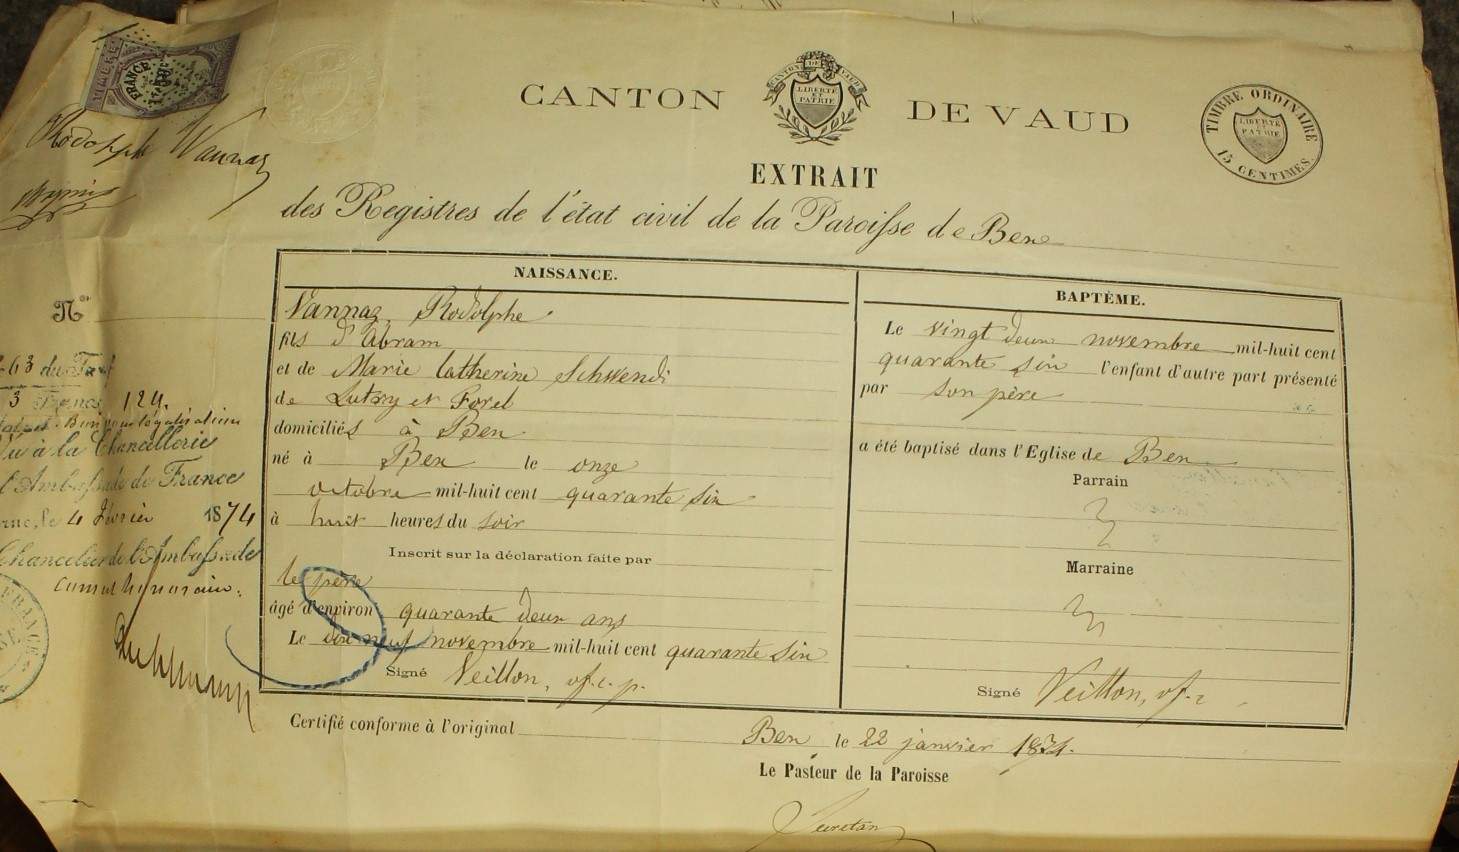 TIMBRE
FRANCE
CANTON DE VAUD
LIBERTÉ
ET
PATRIE
CANTON DE VAUD
TIMBRE ORDINAIRE
LIBERTÉ
ET
PATRIE
15 CENTIMES.
Rodolphe Vannaz
EXTRAIT
des Registres de l'état civil de la Paroisse de Bex
NAISSANCE.
Vannaz, Rodolphe
fils d'Abram
et de Marie Catherine Schwendi
de Lutry et Forel
domiciliés à Bex
né à Bex le onze
octobre mil-huit cent quarante six
à huit heures du soir
Inscrit sur la déclaration faite par
le père
âgé d'environ quarante deux ans
Le dix neuf novembre mil-huit cent quarante six
Signé Veillon, of. c. p.
BAPTÊME.
Le vingt deux novembre mil-huit cent
quarante six l'enfant d'autre part présenté
par son père
a été baptisé dans l'Eglise de Bex
Parrain
Marraine
Signé Veillon, of. c
Certifié conforme à l'original
Bex, le 22 janvier 1874.
Le Pasteur de la Paroisse
Secretan
No
63 du Tarif
3 Francs 124.
Bon pour légalisation
Vu à la Chancellerie
l'Ambassade de France
le 4 Février 1874
Chancelier de l'Ambassade
Consul honoraire.
FRANCE